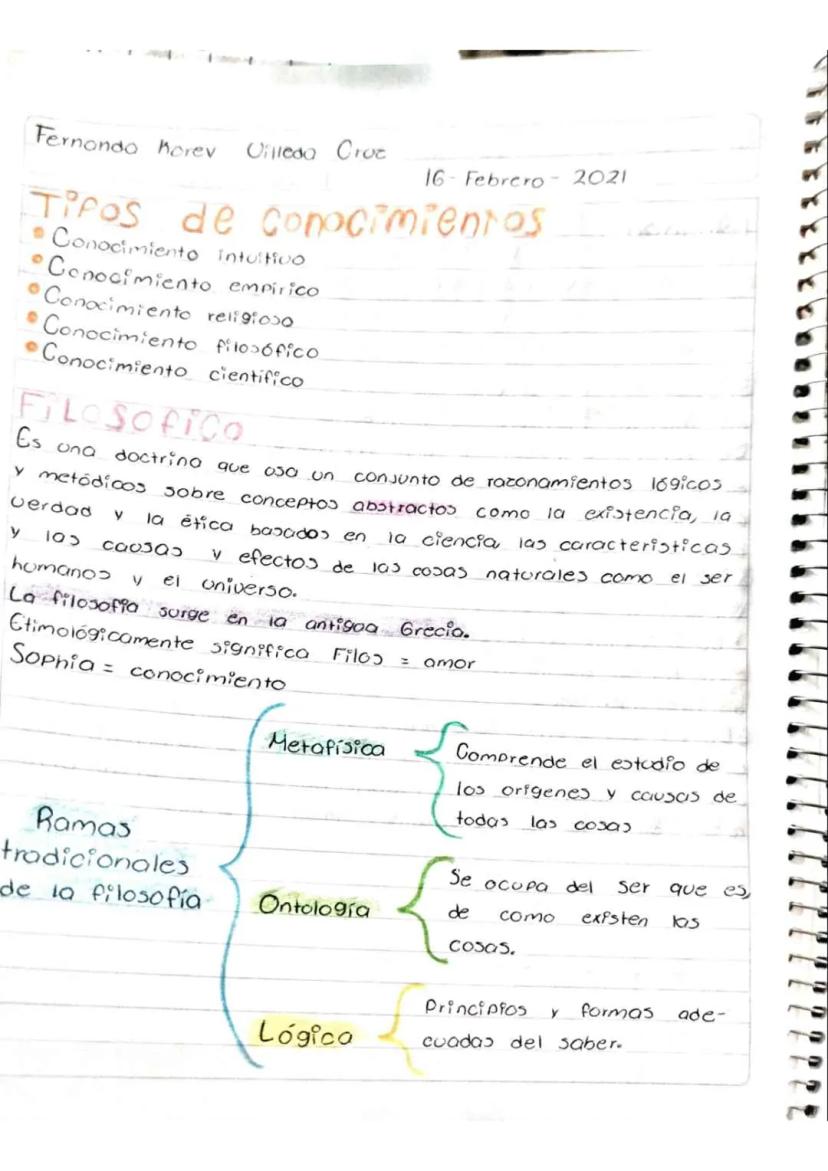 Fernando Korev Villeda Cruz
16-Febrero-2021
Tipos de conocimientos
• Conocimiento intuitivo
• Conocimiento empírico
• Conocimiento religioso
• Conocimiento filosófico
• Conocimiento científico
Filosofico
Es una doctrina que usa un conjunto de razonamientos lógicos
y metódicos sobre conceptos abstractos como la existencia, la
verdad y la ética basados en la ciencia, las características
y las causas y efectos de las cosas naturales como el ser
humanos y el universo.
La filosofía surge en la antigua Grecia.
Etimológicamente significa Filos = amor
Sophia = conocimiento
Ramas
tradicionales
de la filosofía
Metafísica
Comprende el estudio de
los orígenes y causas de
todas las cosas
Ontología
Se ocupa del ser que es,
de como existen las
cosas.
Lógica
Principios y formas ade-
cuadas del saber.